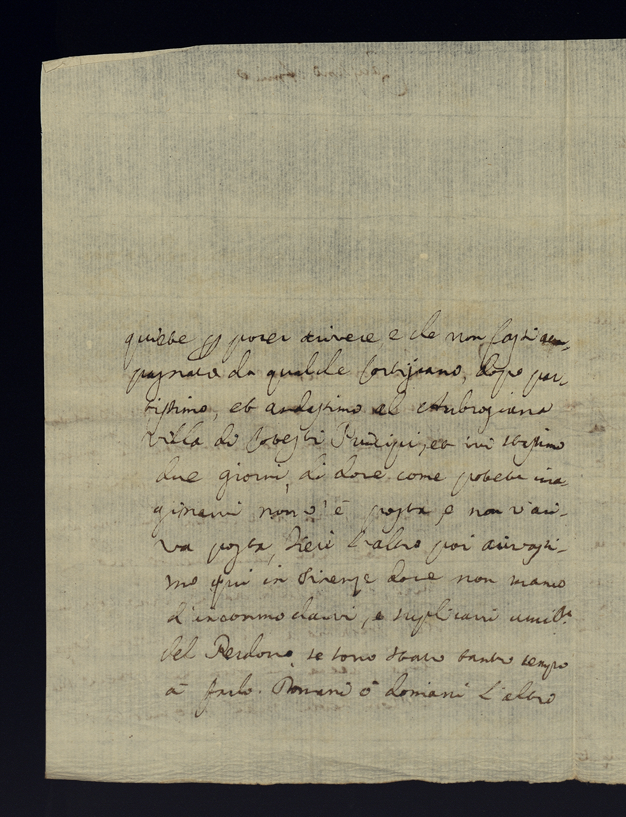 quiete per poter scrivere e che non fossi acom-
pagnata da qualche Cortigiano, dopo par-
tissimo, et andassimo al Ambrogiana
villa di Cotesti Prencipi, et ivi stassimo
due giorni, di dove come potete ima-
ginarvi non v'è posta, e non v'ari-
va posta, Hieri l'altro poi arivassi-
mo qui in Firenze dove non manco
d'incommodarvi, e suplicarvi umil.te
del Perdono, se sono stata tanto tempo
à farlo. Domani ò domani L'altro